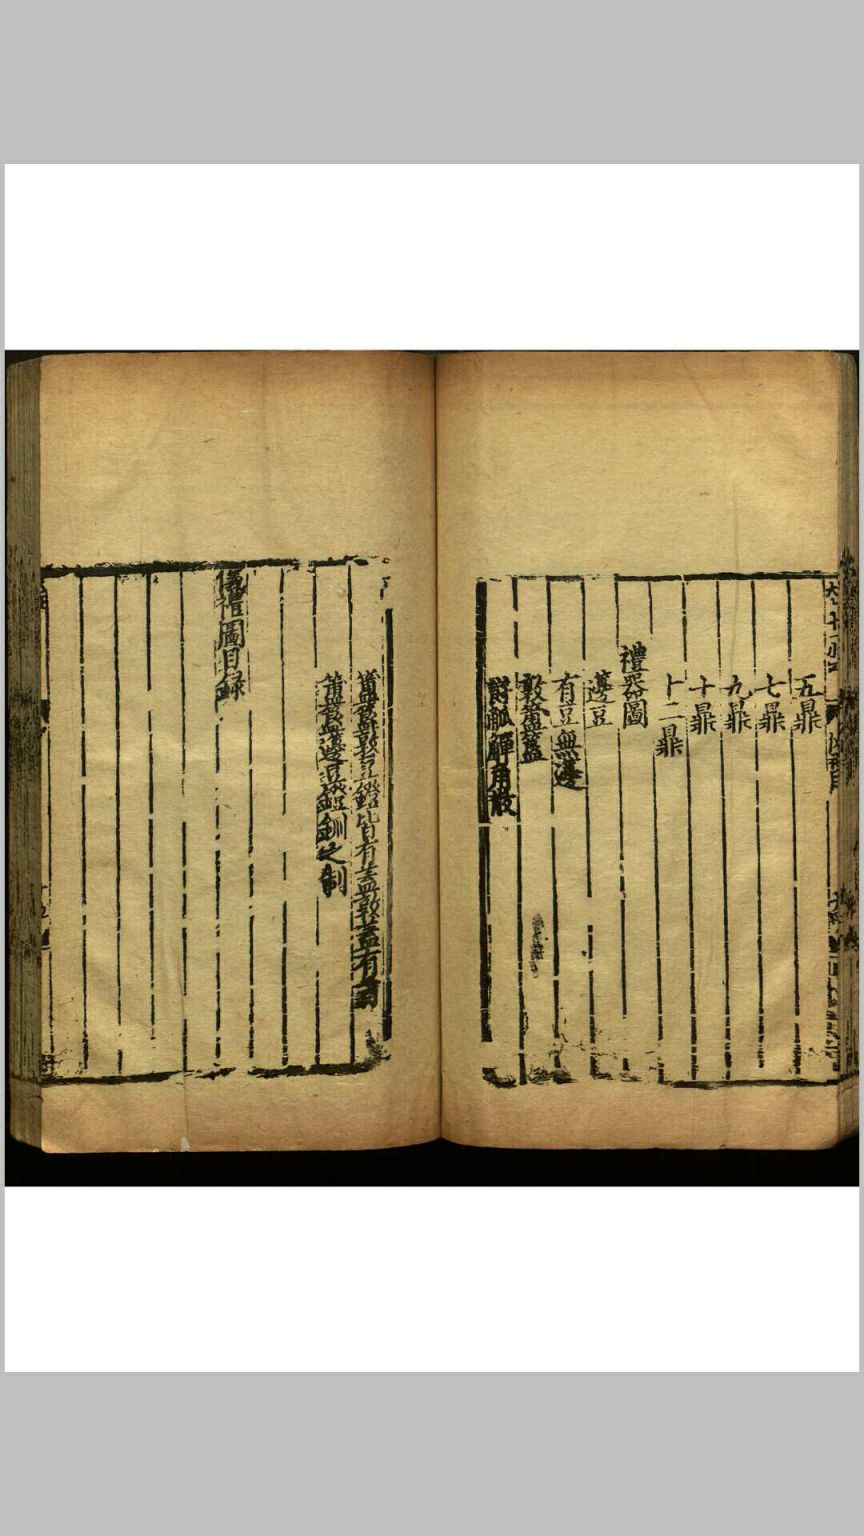 五鼎
七鼎
九鼎
十鼎
十二鼎
禮器圖
籩豆
有豆無籩
敦簠簋
爵觚觶角散
簠簋敦豆鐙皆有蓋敦蓋有首
簠簋籩豆鐙鉶之制
儀禮圖目録